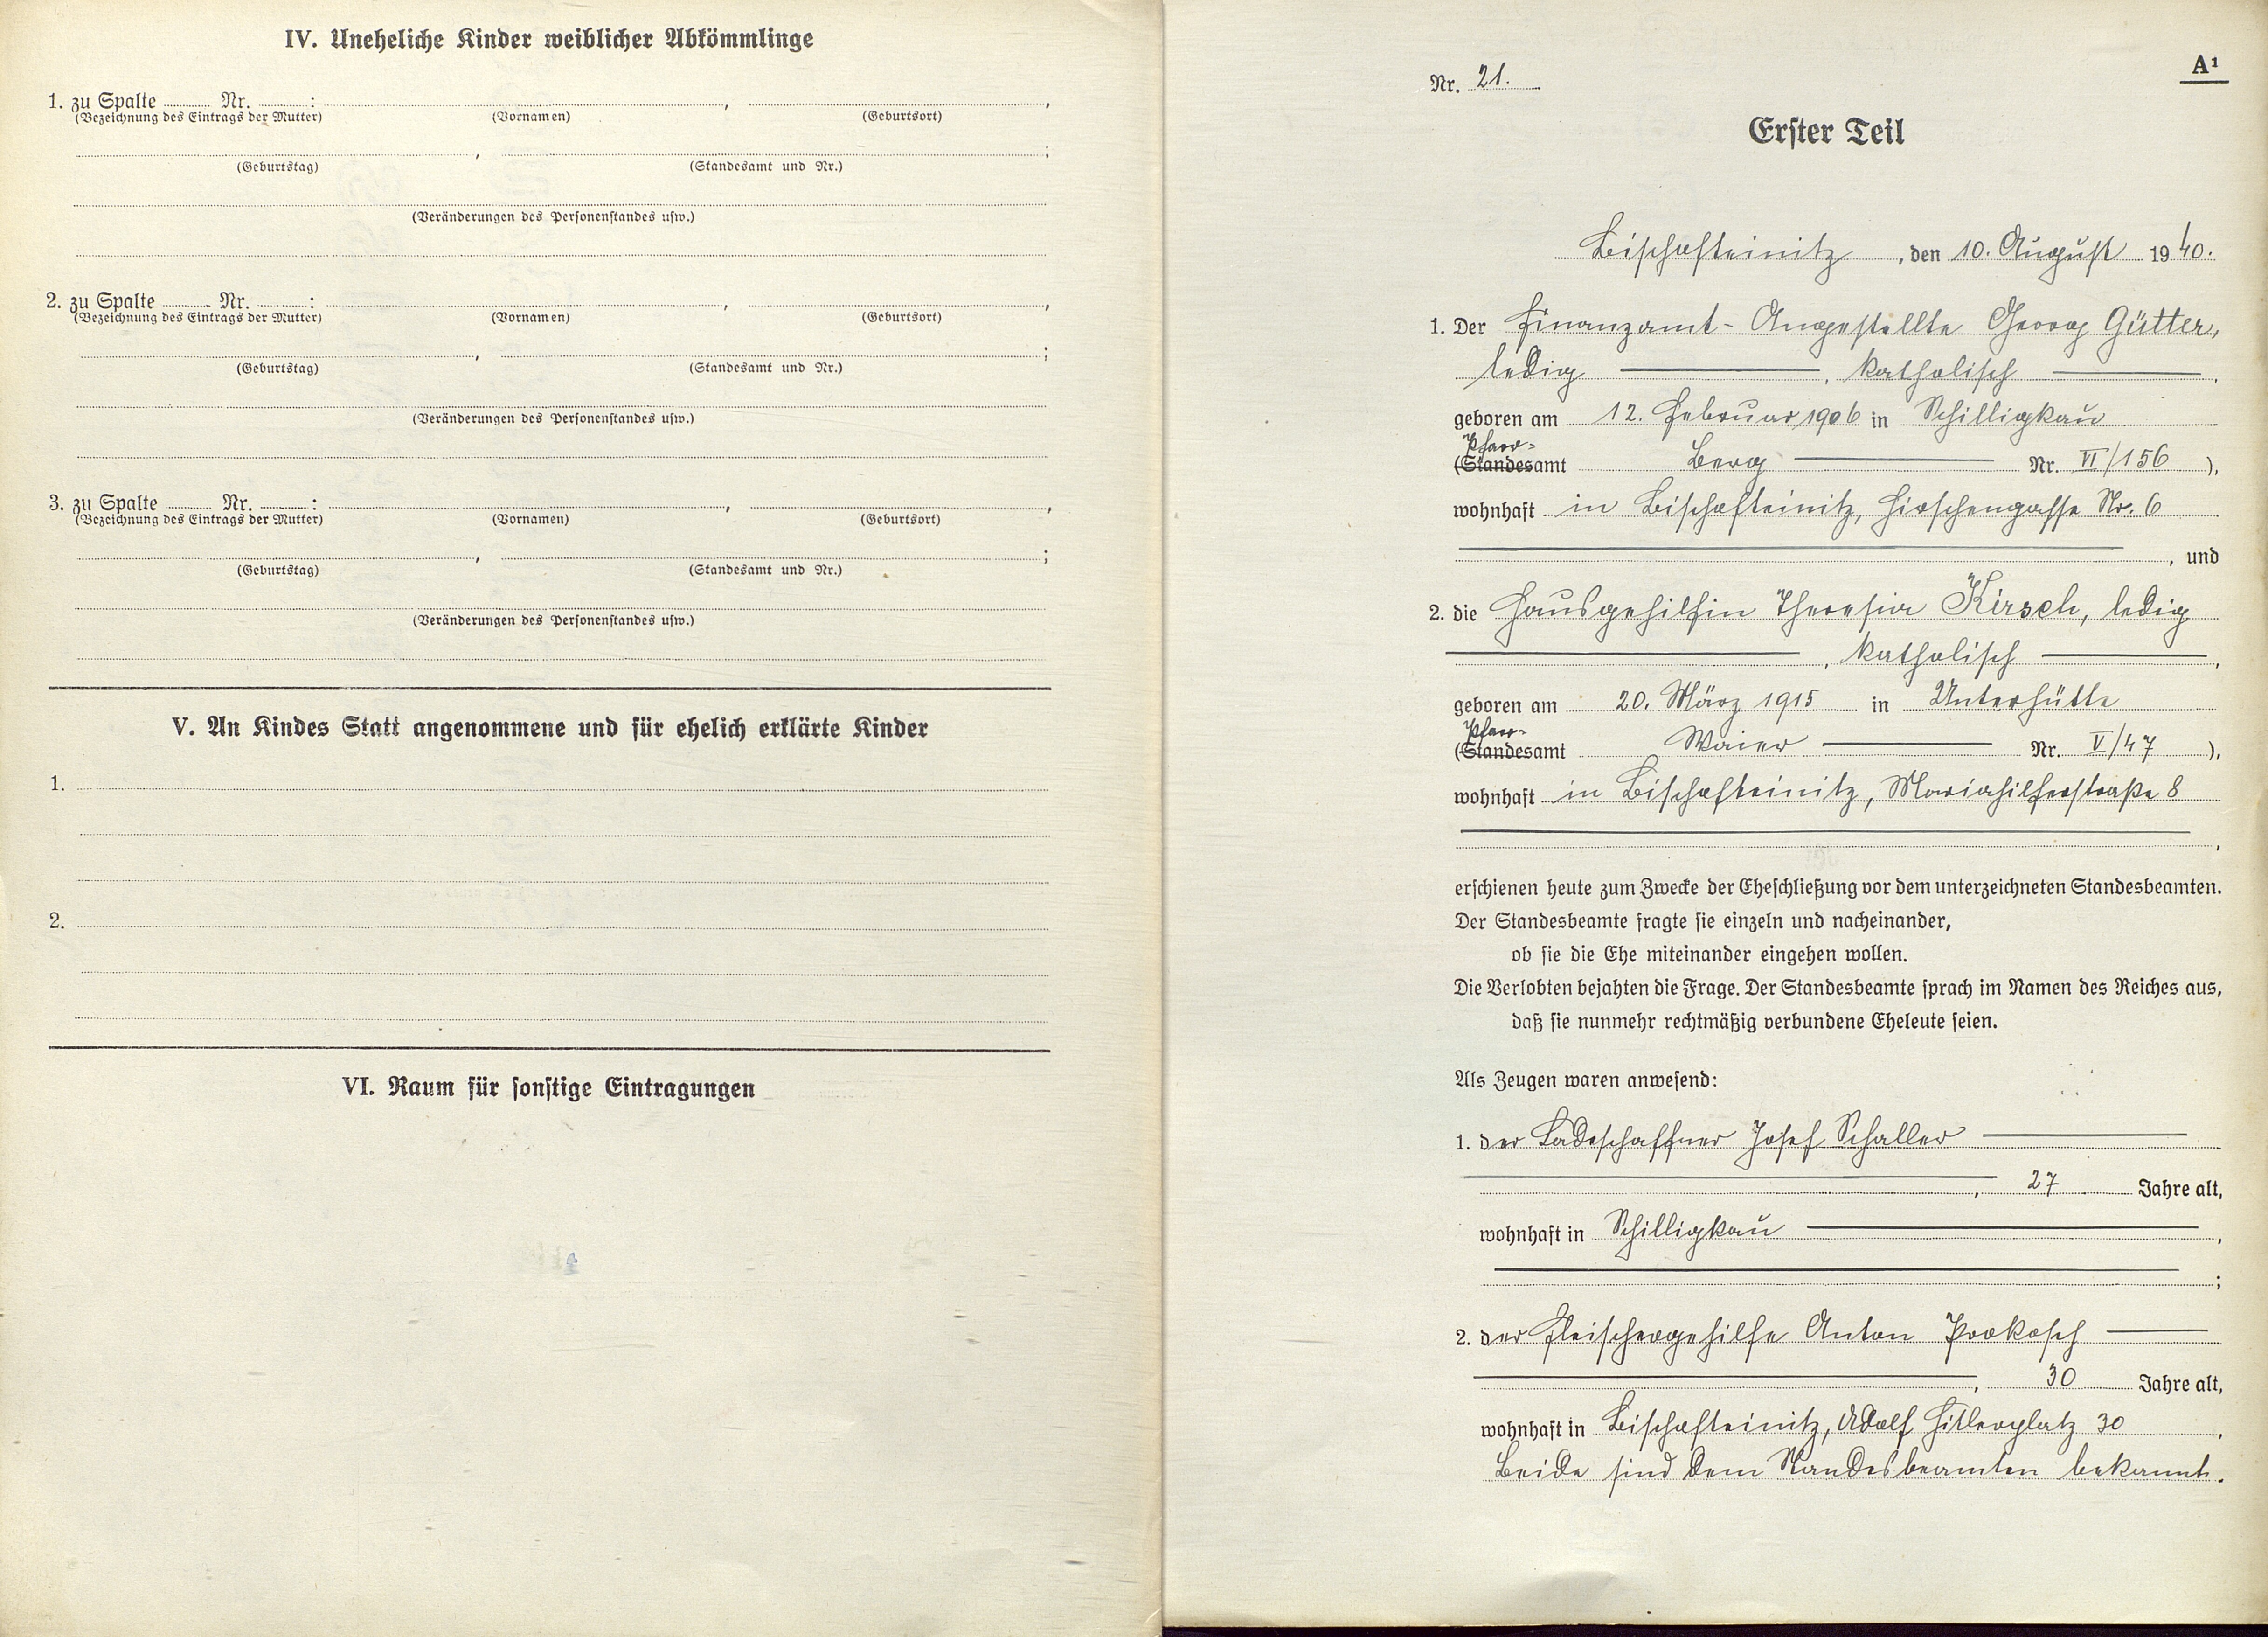 IV. Uneheliche Kinder weiblicher Abkömmlinge
1. zu Spalte Nr. : , ,
(Bezeichnung des Eintrags der Mutter) (Vornamen) (Geburtsort)
, ;
(Geburtstag) (Standesamt und Nr.)
(Veränderungen des Personenstandes usw.)
2. zu Spalte Nr. : , ,
(Bezeichnung des Eintrags der Mutter) (Vornamen) (Geburtsort)
, ;
(Geburtstag) (Standesamt und Nr.)
(Veränderungen des Personenstandes usw.)
3. zu Spalte Nr. : , ,
(Bezeichnung des Eintrags der Mutter) (Vornamen) (Geburtsort)
, ;
(Geburtstag) (Standesamt und Nr.)
(Veränderungen des Personenstandes usw.)
V. An Kindes Statt angenommene und für ehelich erklärte Kinder
1.
2.
VI. Raum für sonstige Eintragungen
A¹
Nr. 21.
Erster Teil
Bischofteinitz, den 10. August 1940.
1. Der Finanzamt-Angestellte Georg Gütter,
ledig, katholisch,
geboren am 12. Februar 1906 in Schilligkau
Pfarr-
(Standesamt Berg Nr. VI/156),
wohnhaft in Bischofteinitz, Hirschengasse Nr. 6
, und
2. die Hausgehilfin Theresia Kirsch, ledig
, katholisch,
geboren am 20. März 1915 in Unterhütte
Pfarr-
(Standesamt Waier Nr. V/47),
wohnhaft in Bischofteinitz, Mariahilferstraße 8
,
erschienen heute zum Zwecke der Eheschließung vor dem unterzeichneten Standesbeamten.
Der Standesbeamte fragte sie einzeln und nacheinander,
ob sie die Ehe miteinander eingehen wollen.
Die Verlobten bejahten die Frage. Der Standesbeamte sprach im Namen des Reiches aus,
daß sie nunmehr rechtmäßig verbundene Eheleute seien.
Als Zeugen waren anwesend:
1. der Ladeschaffner Josef Schaller
, 27 Jahre alt,
wohnhaft in Schilligkau,
;
2. der Fleischergehilfe Anton Prokosch
, 30 Jahre alt,
wohnhaft in Bischofteinitz, Adolf Hitlerplatz 30,
Beide sind dem Standesbeamten bekannt.